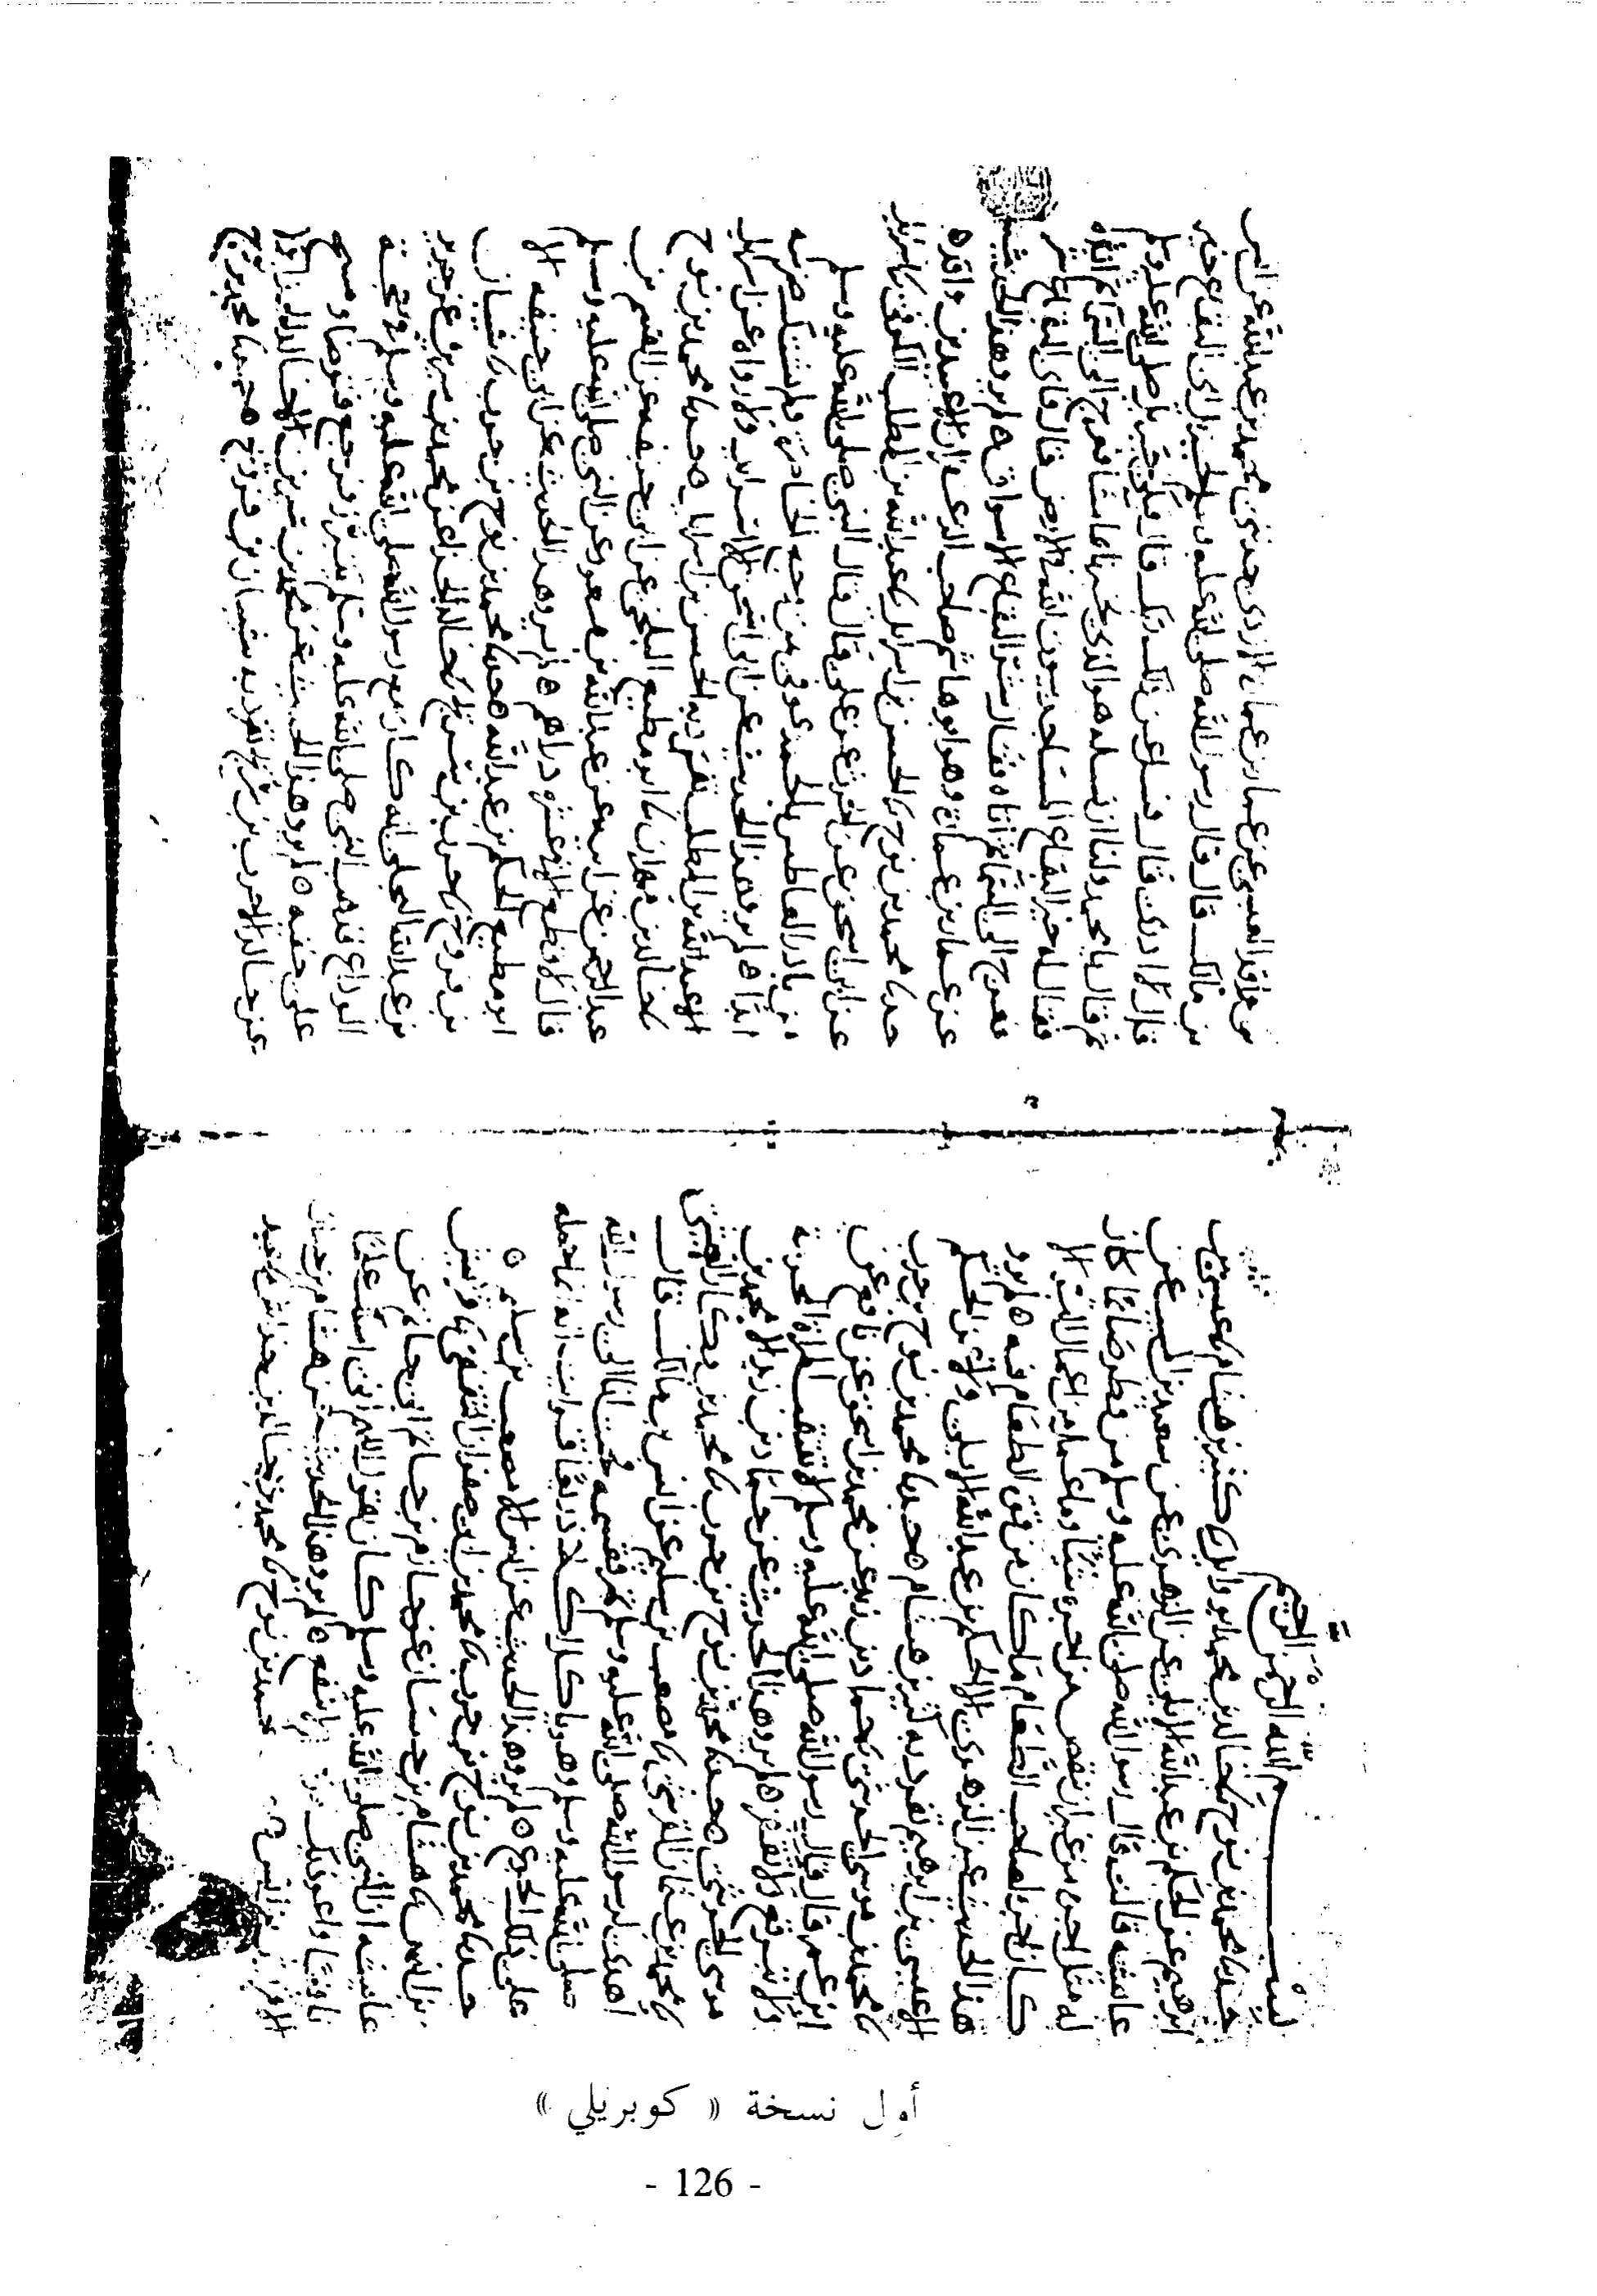 بسم الله الرحمن الرحيم
حدثنا محمد بن نوح نا خالد بن محمد ابو وايل نا كثير بن هشام نا عيسى بن
ابرهيم عن الحكم بن عبد الله الايلي عن الزهري عن سعيد بن المسيب عن
عائشة قالت قال رسول الله صلى الله عليه وسلم من فطر صائما كان
له مثل اجره من غير ان ينقص من اجره شيئا وما عمل من اعمال البر الا
كان اجره لصاحب الطعام ما كان من قوة الطعام فيه ه لم يرو
هذا الحديث عن الزهري الا الحكم بن عبد الله الايلي ولا عن الحكم
الا عيسى بن ابرهيم تفرد به كثير بن هشام ه حدثنا محمد بن نوح بن حرب
نا محمد بن موسى الحرشي نا حماد بن زيد عن محمد بن اسحق عن نافع عن
ابن عمر قال قال رسول الله صلى الله عليه وسلم لا تنتقب المراة المحرمة
ولا تبرقع ولا تقفز ه لم يرو هذا الحديث عن حماد بن زيد الا محمد بن
موسى الحرشي ه حدثنا محمد بن نوح بن حرب نا محمد بن بكار العيشي
نا محمد بن عثمان القرشي نا مصعب بن سليم عن انس بن مالك قال
اهدي لرسول الله صلى الله عليه وسلم تمر فقسمه انا الى رسول الله
صلى الله عليه وسلم وهو ياكل اكلا ذريعا انه ما حمله
على ذلك الجوع ه لم يرو هذا الحديث عن انس الا مصعب بن سليم ه
حدثنا محمد بن نوح بن حرب نا محمد بن ابي صفوان الثقفي نا قريش
بن انس نا هشام بن حسان عن حازم بن ابي حازم عن
عائشة ان النبي صلى الله عليه وسلم كان يقول اللهم اني اسئلك علما
نافعا واعوذ بك لا ينفع ه لم يرو هذا الحديث عن هشام بن حسان
الا قريش بن انس محمد بن نوح نا محمد بن خالد بن خداش عبيد
بن واقد العبسي عن عمار بن عمارة الازدي حدثني محمد بن عبد الله عن انس
بن مالك قال قال رسول الله صلى الله عليه وسلم لجبريل اي البقاع خير
قال لا ادري قال فسل عن ذلك ربك قال فبكى جبريل صلى الله عليه وسلم
ثم قال يا محمد ولنا ان نساله هو الذي يخبرنا بما شا فعرج الى السما ثم اتاه
فقال له خير البقاع المساجد بيوت الله في الارض قال فاي البقاع شر
فعرج الى السما ثم اتاه فقال شر البقاع الاسواق ه لم يرو هذا الحديث
عن عمار بن عمارة وهو ابو هاشم صاحب الزعفران الا عبيد بن واقد ه
حدثنا محمد بن نوح نا الحسن بن اسرايل نا عبد الله بن المطلب الكوفي
عن ابي اسحق عن الحرث عن علي قال قال النبي صلى الله عليه وسلم
من بادر العاطس بالحمد عوفي من وجع الخاصرة ولم يشتك ضرسه
ابدا ه لم يرو هذا الحديث عن ابي اسحق الا اسرايل ولا رواه عن اسرايل
الا عبد الله بن المطلب تفرد به الحسن بن اسرايل ه حدثنا محمد بن نوح
نا خالد بن مهران نا ابو مطيع البلخي عن ابي حنيفة عن القسم بن
عبد الرحمن عن ابيه عن عبد الله بن مسعود عن النبي صلى الله عليه وسلم
قال لا قطع الا في عشرة دراهم ه لم يرو هذا الحديث عن ابي حنيفة الا
ابو مطيع الحكم بن عبد الله ه حدثنا محمد بن نوح بن حرب نا شيبان
بن فروخ نا حرب بن سريج نا خالد الحذا عن محمد بن سيرين عن جرير
بن عبد الله البجلي انه كان مع رسول الله صلى الله عليه وسلم في حجة
الوداع فذهب النبي صلى الله عليه وسلم يتبرز فرجع فتوضا ومسح
على خفيه ه لم يرو هذا الحديث عن محمد بن سيرين الا خالد الحذا ولا
عن خالد الا حرب بن سريج تفرد به شيبان بن فروخ ه حدثنا محمد بن نوح
أول نسخة « كوبريلي »
- 126 -